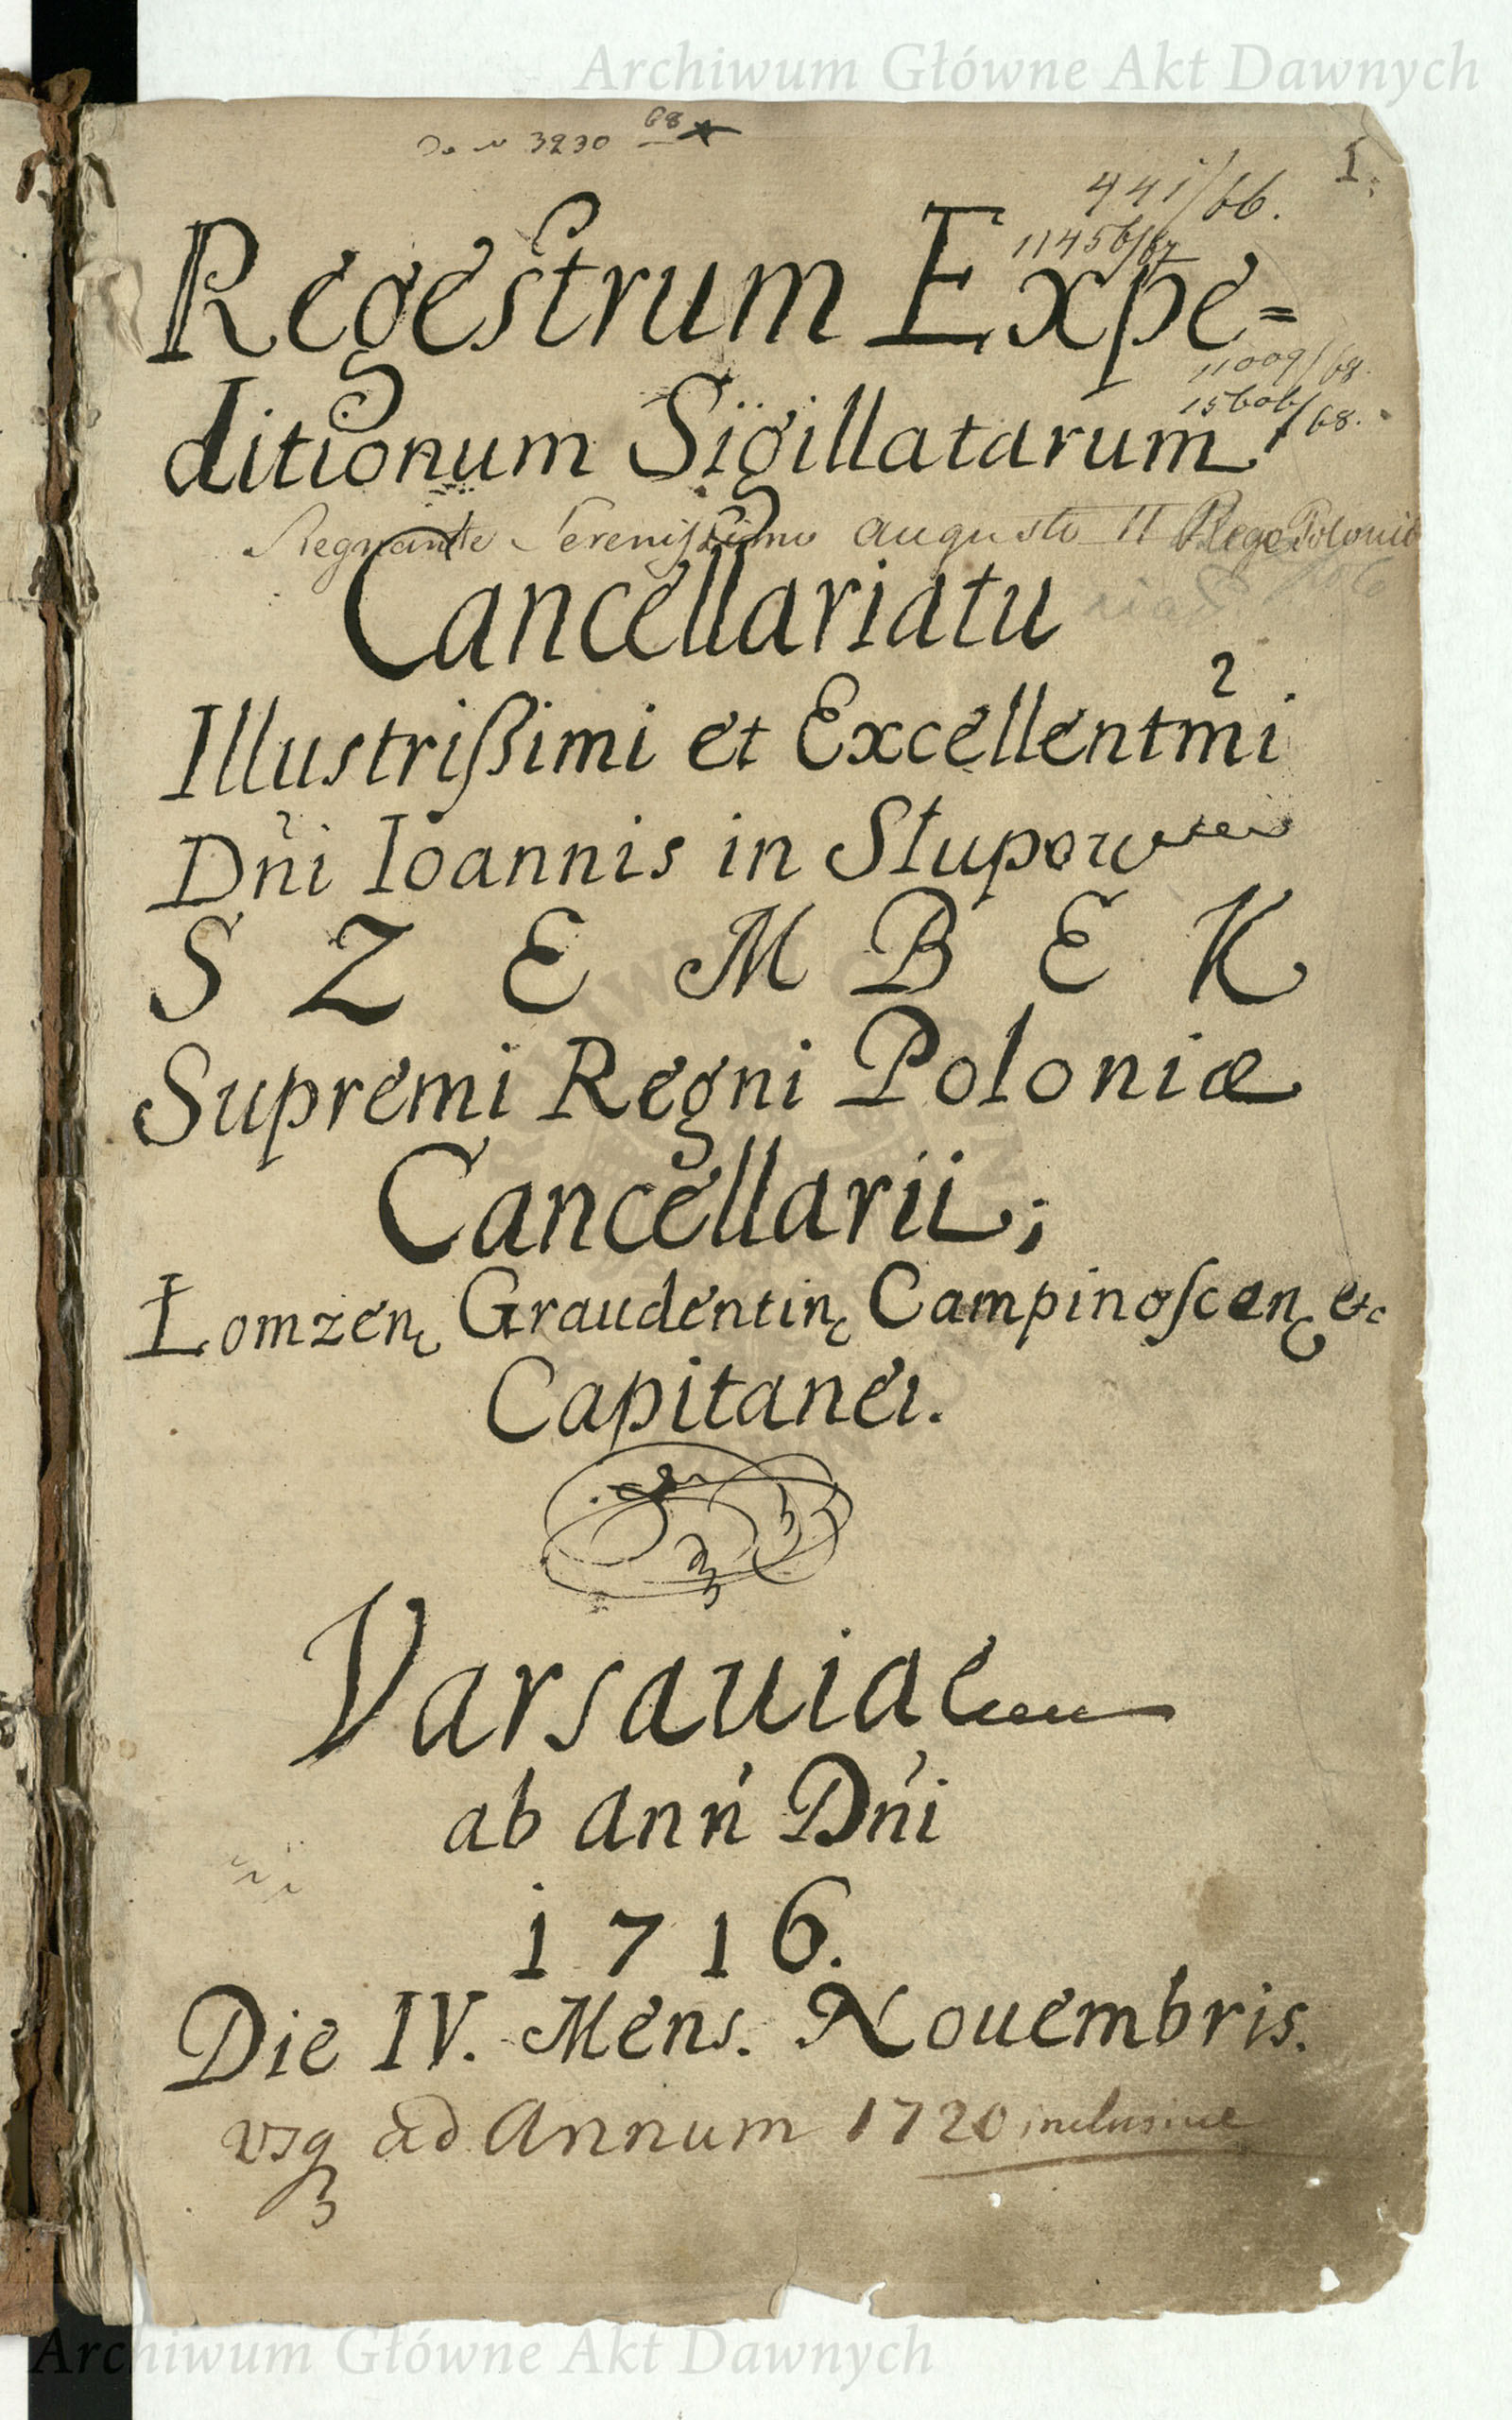 Archiwum Główne Akt Dawnych
3230 68
1.
441/66.
Regestrum Expe=
11456/67
11009/68.
15606/68.
ditionum Sigillatarum
Regnante Serenissimo Augusto II Rege Polonia
Cancellariatu
Illustrißimi et Excellentm̃i
Dñi Ioannis in Stupow
SZEMBEK
Supremi Regni Poloniæ
Cancellarii;
Łomzen, Graudentin, Campinoſcen, etc
Capitanei.
Varsauiae
ab Anń Dńi
1716.
Die IV. Mens. Nouembris.
vsq ad Annum 1720 inclusive
Archiwum Główne Akt Dawnych